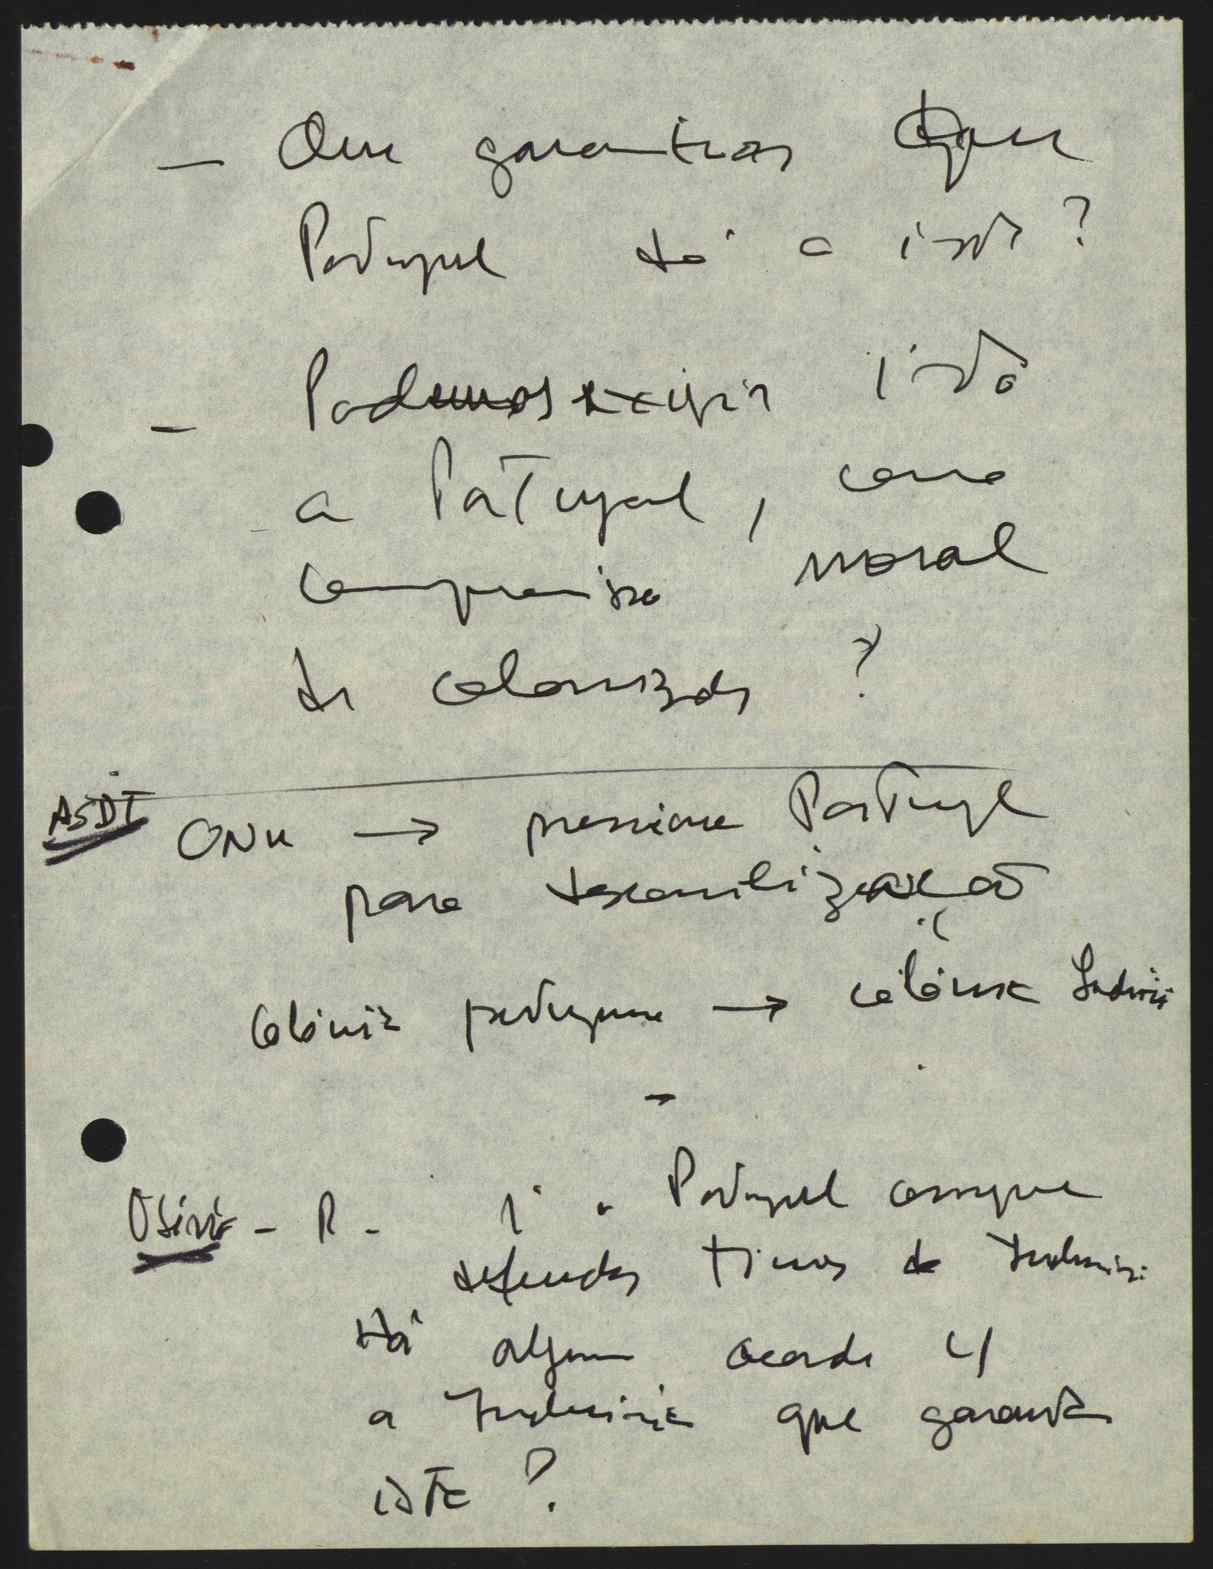 — Que garantias que
Portugal dá a isto?
— Podemos exigir isto
a Portugal, como
compromisso moral
de colonizador?
ASDT ONU → pressione Portugal
para descolonização
Colónia portuguesa → colónia Indonésia
–
– R – 1
Portugal consegue
defender Timor da Indonésia
Há algum acordo c/
a Indonésia que garanta
isto?